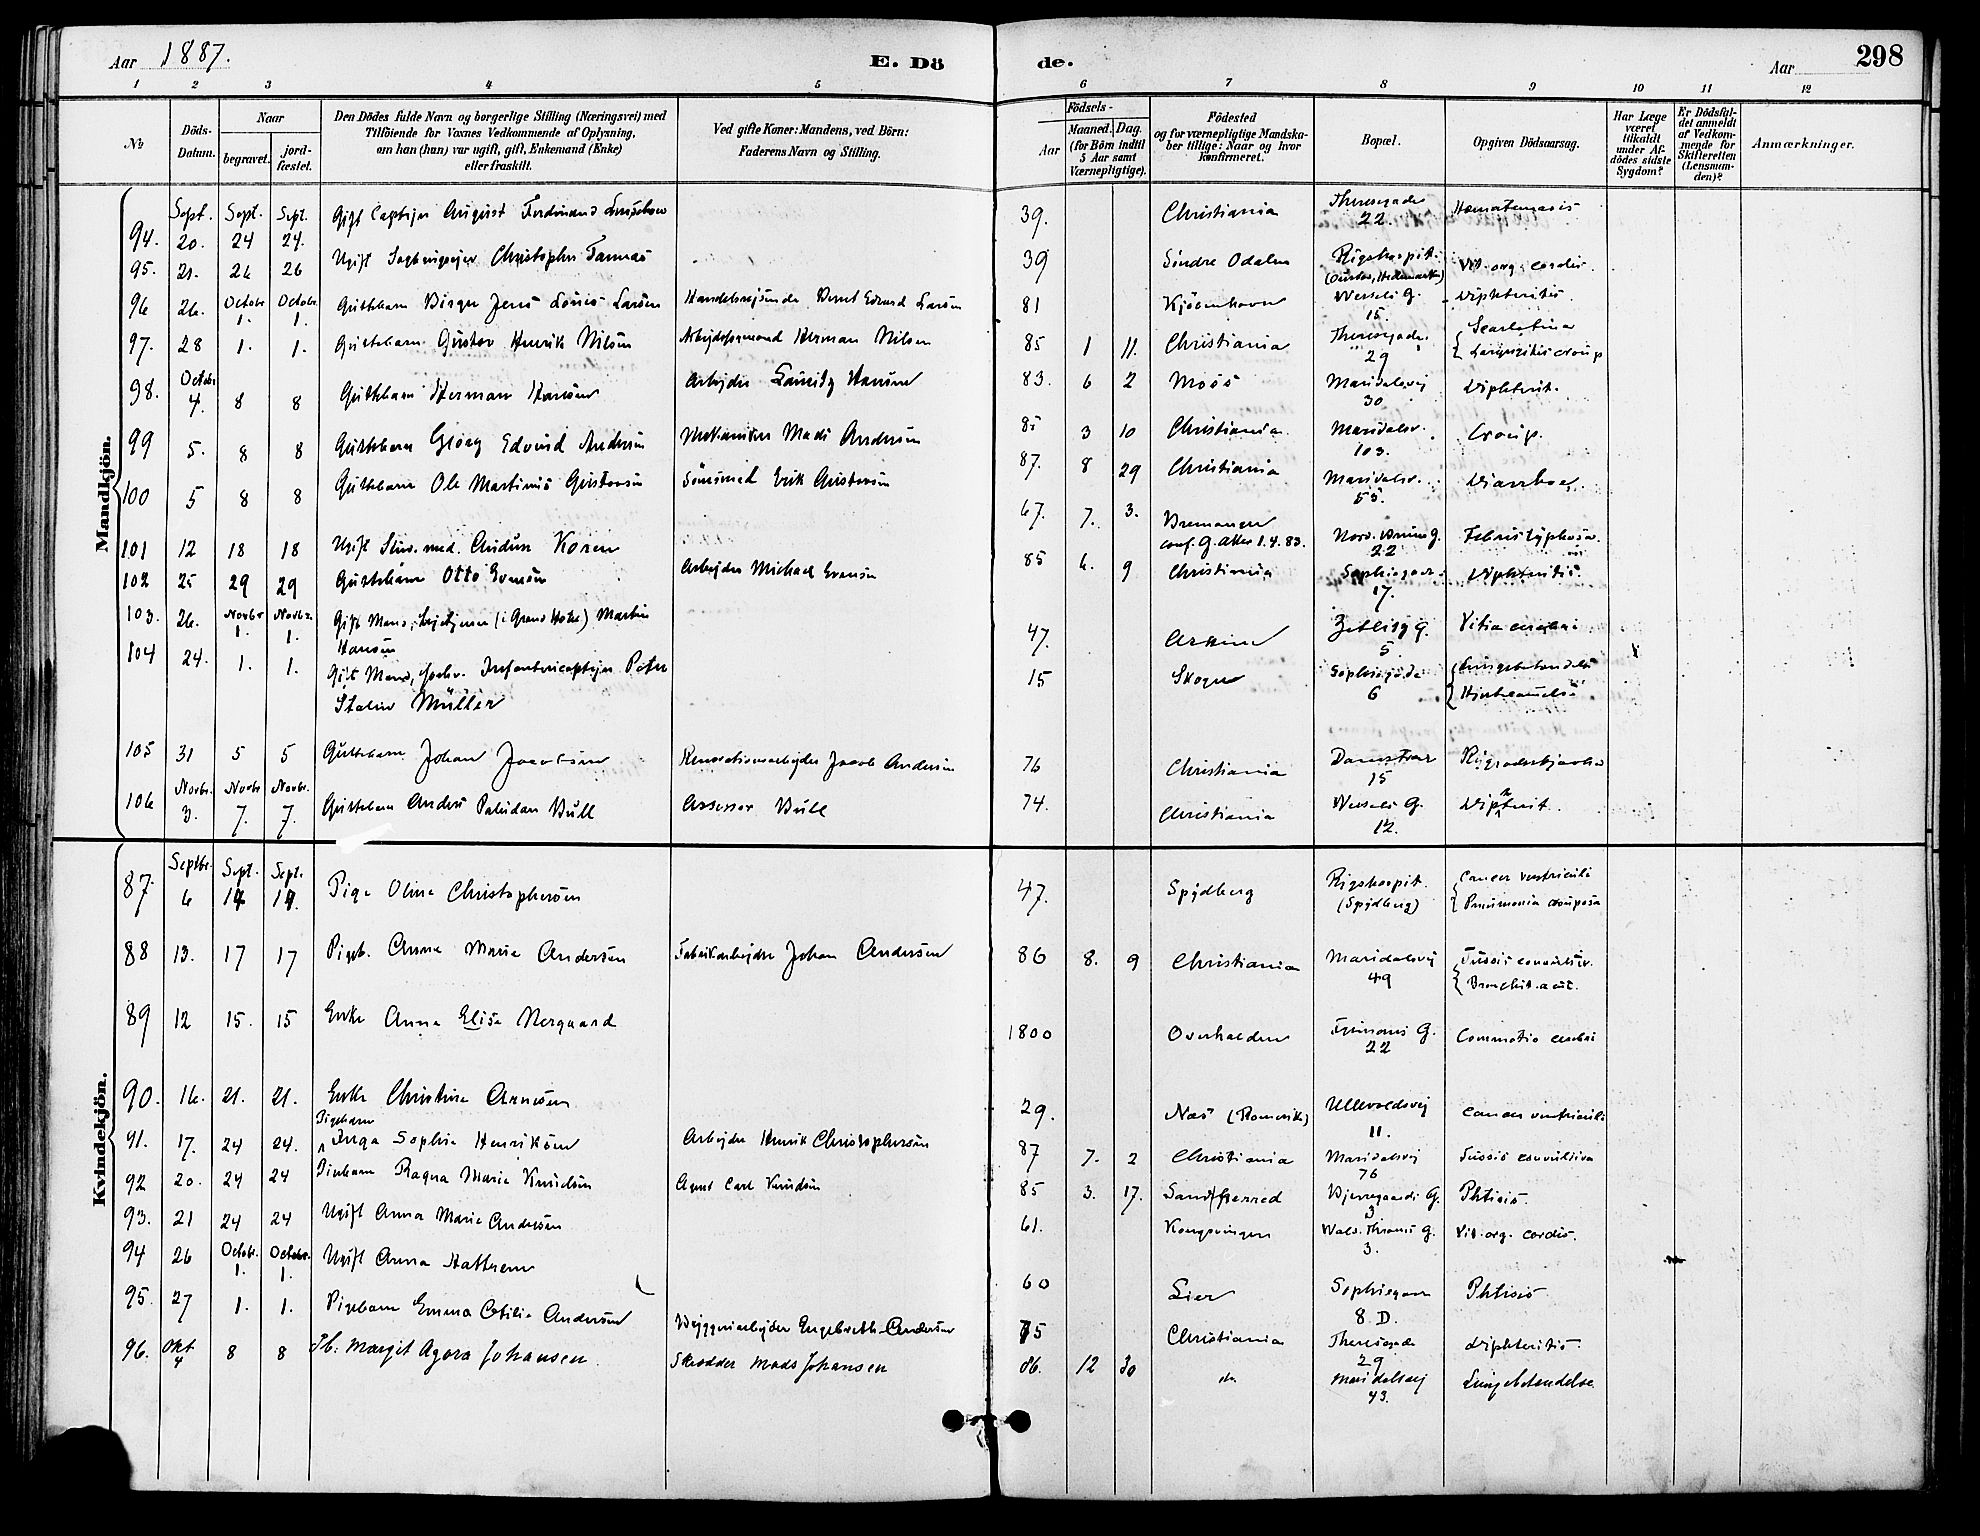 Aar 1887.
E. Dö
de.
Aar
298
1 2 3 4 5 6 7 8 9 10 11 12
No
Döds-Datum.
Naar
begravet.
jord-fæstet.
Den Dödes fulde Navn og borgerlige Stilling (Næringsvei) med
Tilföiende for Voxnes Vedkommende af Oplysning,
om han (hun) var ugift, gift, Enkemand (Enke)
eller fraskilt.
Ved gifte Koner: Mandens, ved Börn:
Faderens Navn og Stilling.
Födsels-
Aar
Maaned. Dag.
(for Börn indtil
5 Aar samt
Værnepligtige).
Födested
og for værnepligtige Mandska-
ber tillige: Naar og hvor
konfirmeret.
Bopæl.
Opgiven Dödsaarsag.
Har Læge
været
tilkaldt
under Af-
dödes sidste
Sygdom?
Er Dödsfal-
det anmeldt
af Vedkom-
mende for
Skifteretten
(Lensman-
den)?
Anmærkninger.
Mandkjön.
94. Sept. 20. Sept. 24 Sept. 24. Gift August Ferdinand 39. Christiania Theresegade 22. Hæmatemesis
95. 21. 26 26 Ugift Christopher 39 Söndre Odalen Rigshospit. Vit. org. cordis.
96 26. Octobr 1. Octobr. 1. Guttebarn Birger Jens Louis Larsen Handelsrejsende Bernt Edvard Larsen 81 Kjöbenhavn Wessels G. 15. Diphteritis.
97. 28 1. 1. Guttebarn Gustav Henrik Nilsen Arbejdsmand Herman Nilsen 85 1 11. Christiania Theresegade 29 Scarlatina Laryngitis croup
98. Octobr 4. 8 8 Guttebarn Herman Hansen Arbejder Lauritz Hansen 83. 6 2 Moss Maridalsvej 30 Diphterit.
99 5. 8 8 Guttebarn Georg Edvard Andersen Mekaniker Mads Andersen 85 3 10 Christiania Maridalsv. 103. Croup.
100 5 8 8 Guttebarn Ole Martinius Gustavsen Erik Gustavsen 87. 8 29 Christiania Maridalsv. 55. Diarrhoe.
101 12 18 18 Ugift Stud. med. Audun Koren 67. 7. 3. Bremanger conf. G. Aker 1.4.83. Nord. Bruns G. 22 Febris typhosa.
102 25 29 29 Guttebarn Otto Evensen Arbejder Michael Evensen 85 6. 9 Christiania Sophiegade 17. Diphteritis.
103. 26. Novbr 1. Novbr. 1. Gift Mand, (i Grand Hotel) Martin Hansen 47. Zetlitz G. 5 Vitia cerebri
104 24. 1. 1. Gift Mand, Peter Müller 15 Skoger Sophiegade 6 Lungebetændelse
105 31 5 5 Guttebarn Johan Jacobsen Renovationsarbejder Jacob Andersen 76 Christiania Damstræd 15
106 Novbr. 3. Novbr 7. Novbr. 7. Guttebarn Anders Paludan Bull Assessor Bull 74. Christiania Wessels G. 12. Dipterit.
Kvindekjön.
87. Septbr. 6 Sept. 14 Sept. 14. Pige Oline Christophersen 47. Spydberg Rigshospit. (Spydberg) Cancer ventriculi Pneumonia crouposa
88 13. 17 17 Pigeb. Anna Marie Andersen Fabrikarbejder Johan Andersen 86 8. 9 Christiania Maridalsvej 49 Tussis convulsiv. Bronchit. acut.
89 12 15. 15 Enke Anna Elise Nergaard 1800 Overhalden G. 22 Commotio cerebri
90. 16. 21. 21. Enke Christine Arnesen 29. Næs (Romerik) Ullevoldsvej 11. Cancer ventriculi
91. 17. 24 24. Pigebarn Inga Sophie Henriksen Arbejder Henrik Christophersen 87 7. 2 Christiania Maridalsvej 76 Tussis convulsiva
92 20. 24 24 Pigebarn Ragna Marie Knudsen Agent Carl Knudsen 85 3. 17. Sandsherred Bjerregaards G. 3 Phtisis.
93. 21 24 24 Ugift Anna Marie Andersen 61. Kongsvinger Wald. Thranes G. 3. Vit. org. cordis.
94 26 Octobr. 1. Octobr. 1. Ugift Anna Hattrem 60 Lier Sophiegade 8 D. Phtisis
95. 27 1. 1. Pigebarn Emma Otilie Andersen Bryggeriarbejder Engebreth Andersen 75 Christiania Theresegade 29 Diphteritis.
96. Okt 4 8 8 Pb. Margit Agora Johansen. Skrædder Mads Johansen 86. 12 30 do. Maridalsvej 43. Lungebetændelse.